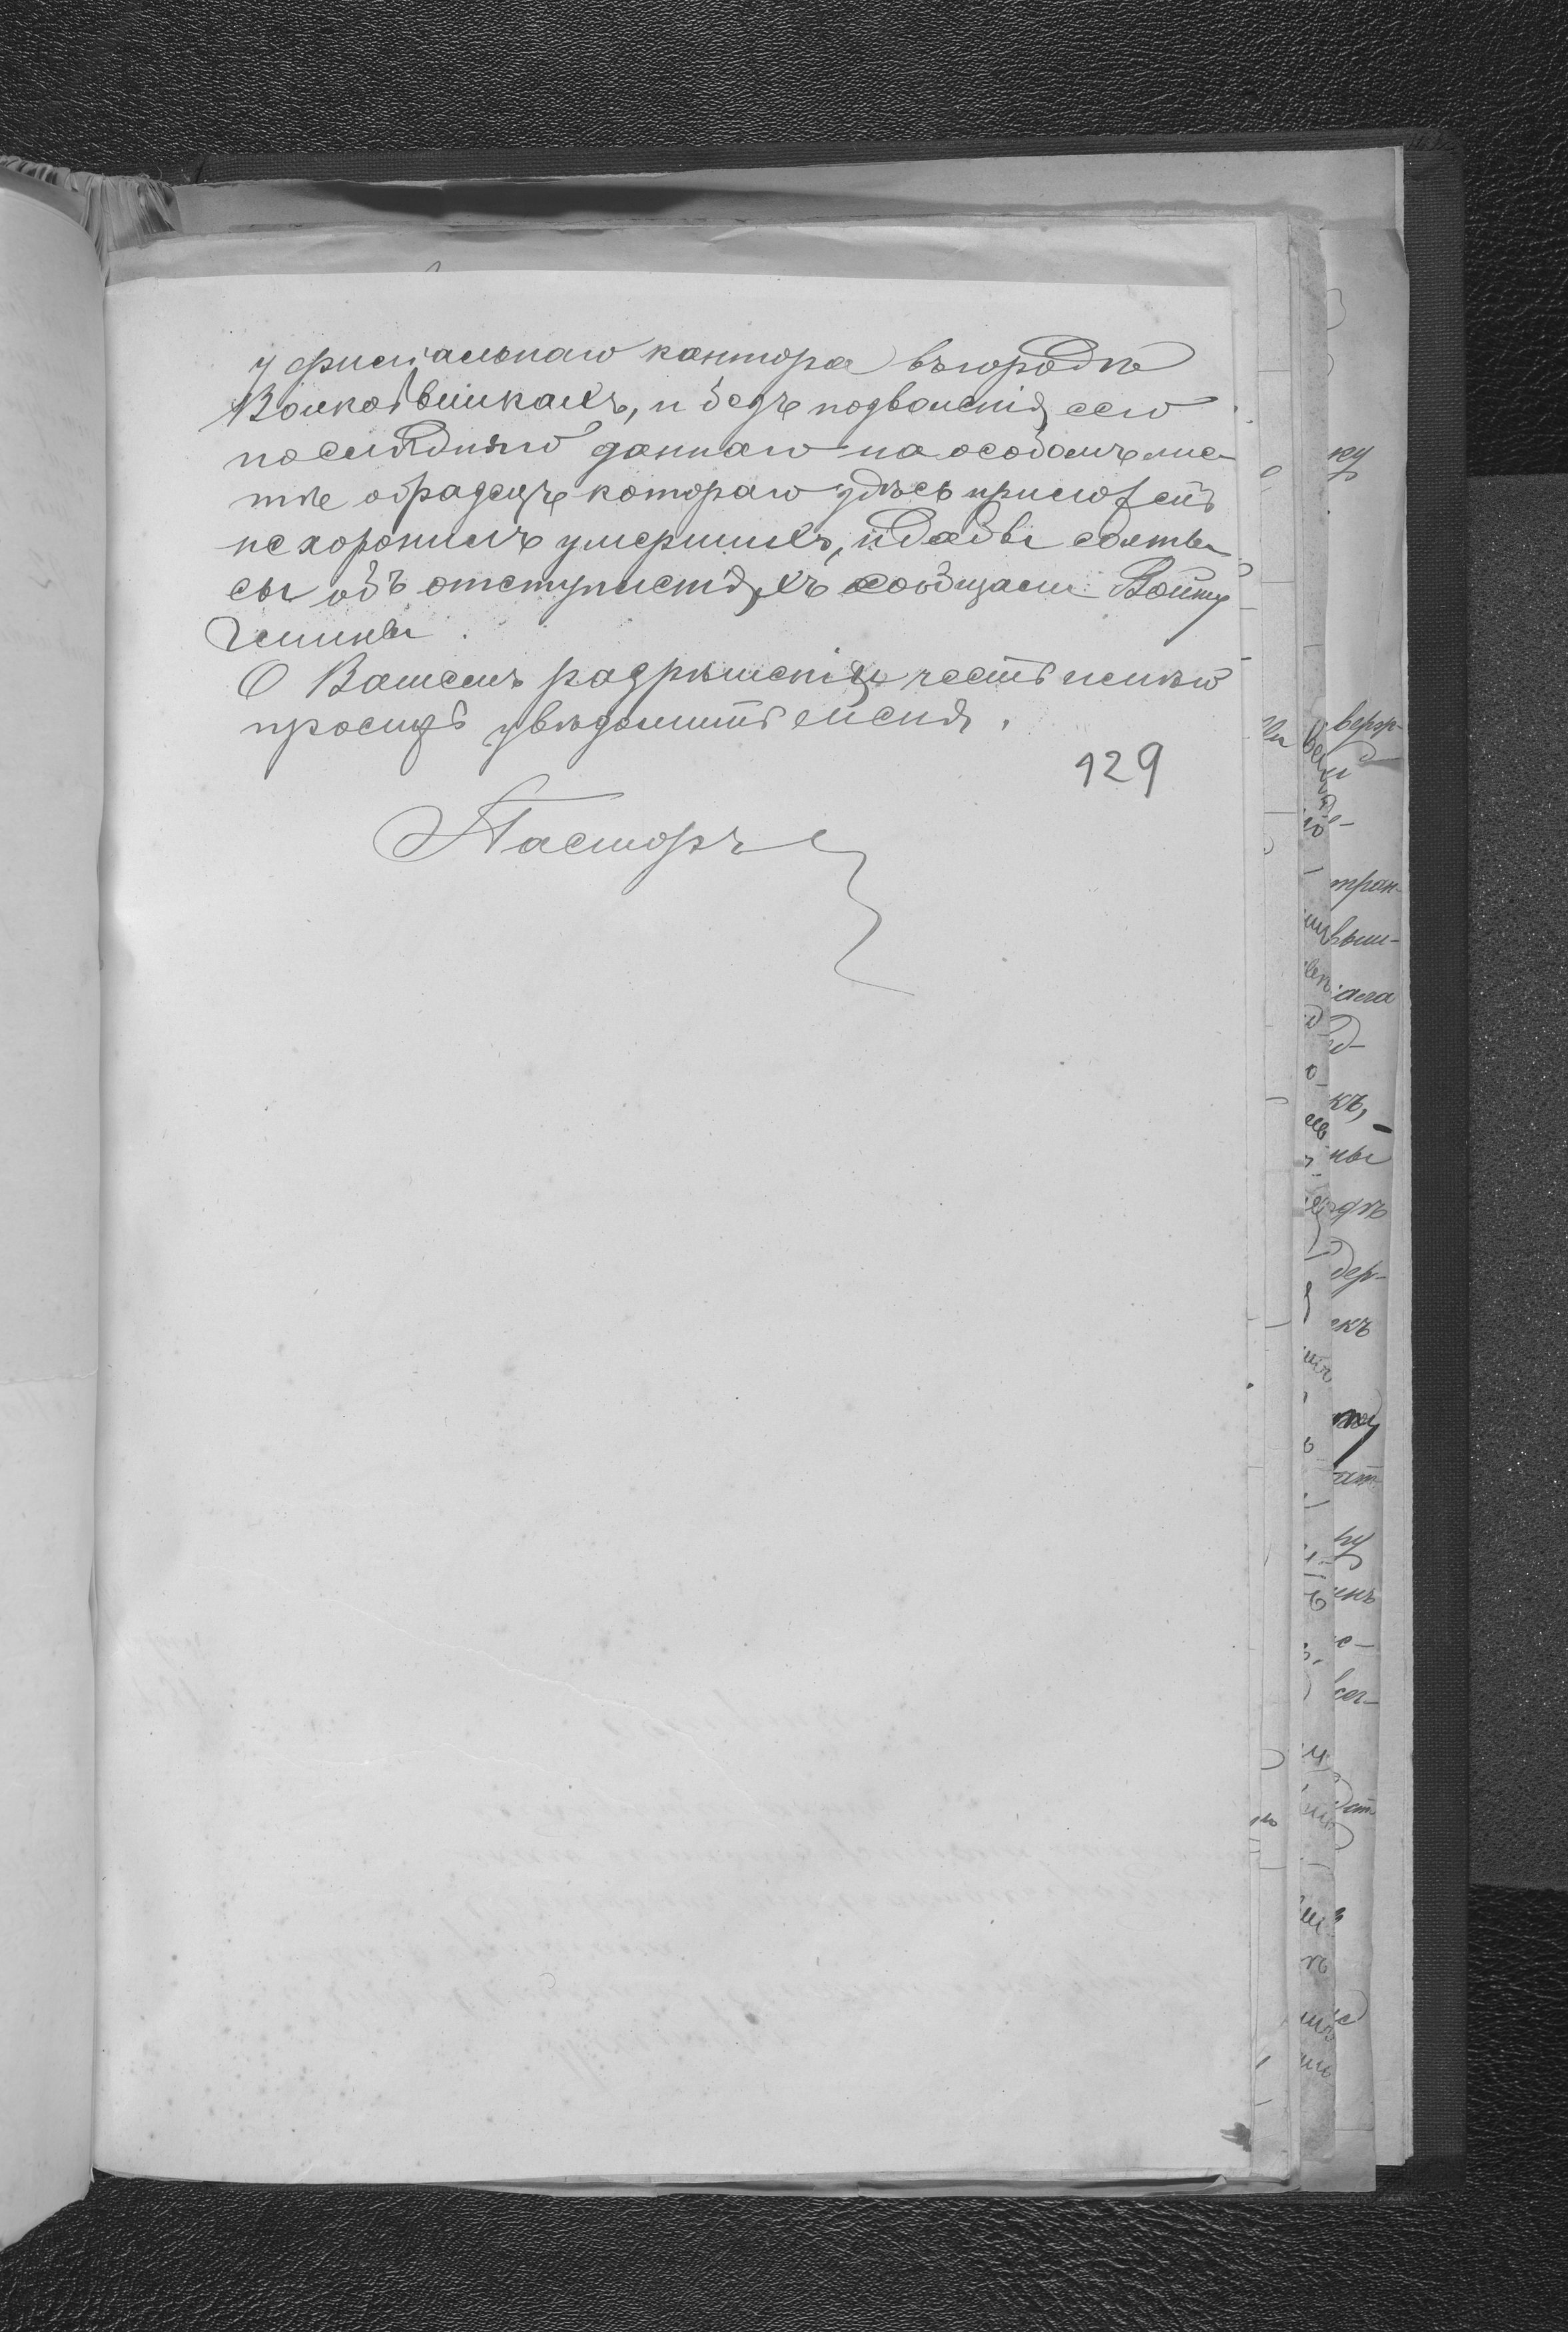 у филіальнаго кантора въ городѣ
Волковишкахъ, и безъ позволенія сего
послѣдняго даннаго на особомъ лис-
тке образецъ котораго здѣсь приложенъ
не хоронилъ умершихъ, и дабы солты-
сы объ отступленіяхъ сообщали Войту
Гмины.
О Вашемъ разрѣшеніи честь имѣю
просить увѣдомить меня.
129
Пасторъ